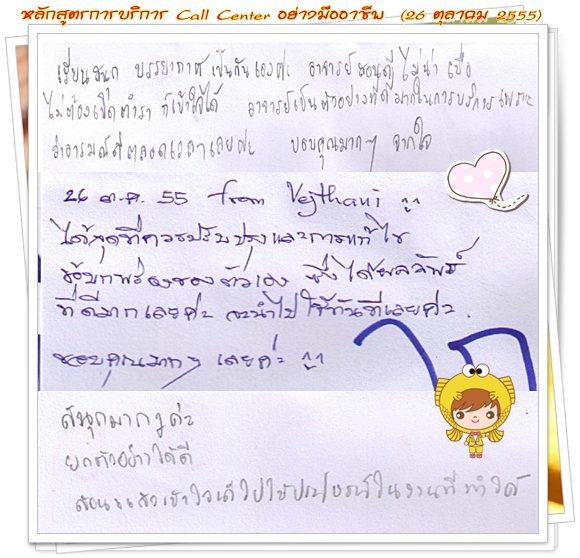 หลักสูตรการบริการ Call Center อย่างมืออาชีพ (26 ตุลาคม 2555)
เรียนสนุก บรรยากาศเป็นกันเองค่ะ อาจารย์สอนดี ไม่น่าเบื่อ
ไม่ต้องเปิดตำรา ก็เข้าใจได้ อาจารย์เป็นตัวอย่างที่ดีมากในการบริการ เพราะ
อารมณ์ดีตลอดเวลาเลยค่ะ ขอบคุณมากๆ จากใจ
26 ต.ค. 55 from Vejthani ^^
ได้จุดที่ควรปรับปรุงและการแก้ไข
ข้อบกพร่องของตัวเอง ซึ่งได้ผลลัพธ์
ที่ดีมากเลยค่ะ จะนำไปใช้ทันทีเลยค่ะ.
ขอบคุณมากๆ เลยค่ะ ^^
สนุกมากๆค่ะ
ยกตัวอย่างได้ดี
สอนแล้วเข้าใจ นำไปใช้ประโยชน์ในงานที่ทำได้